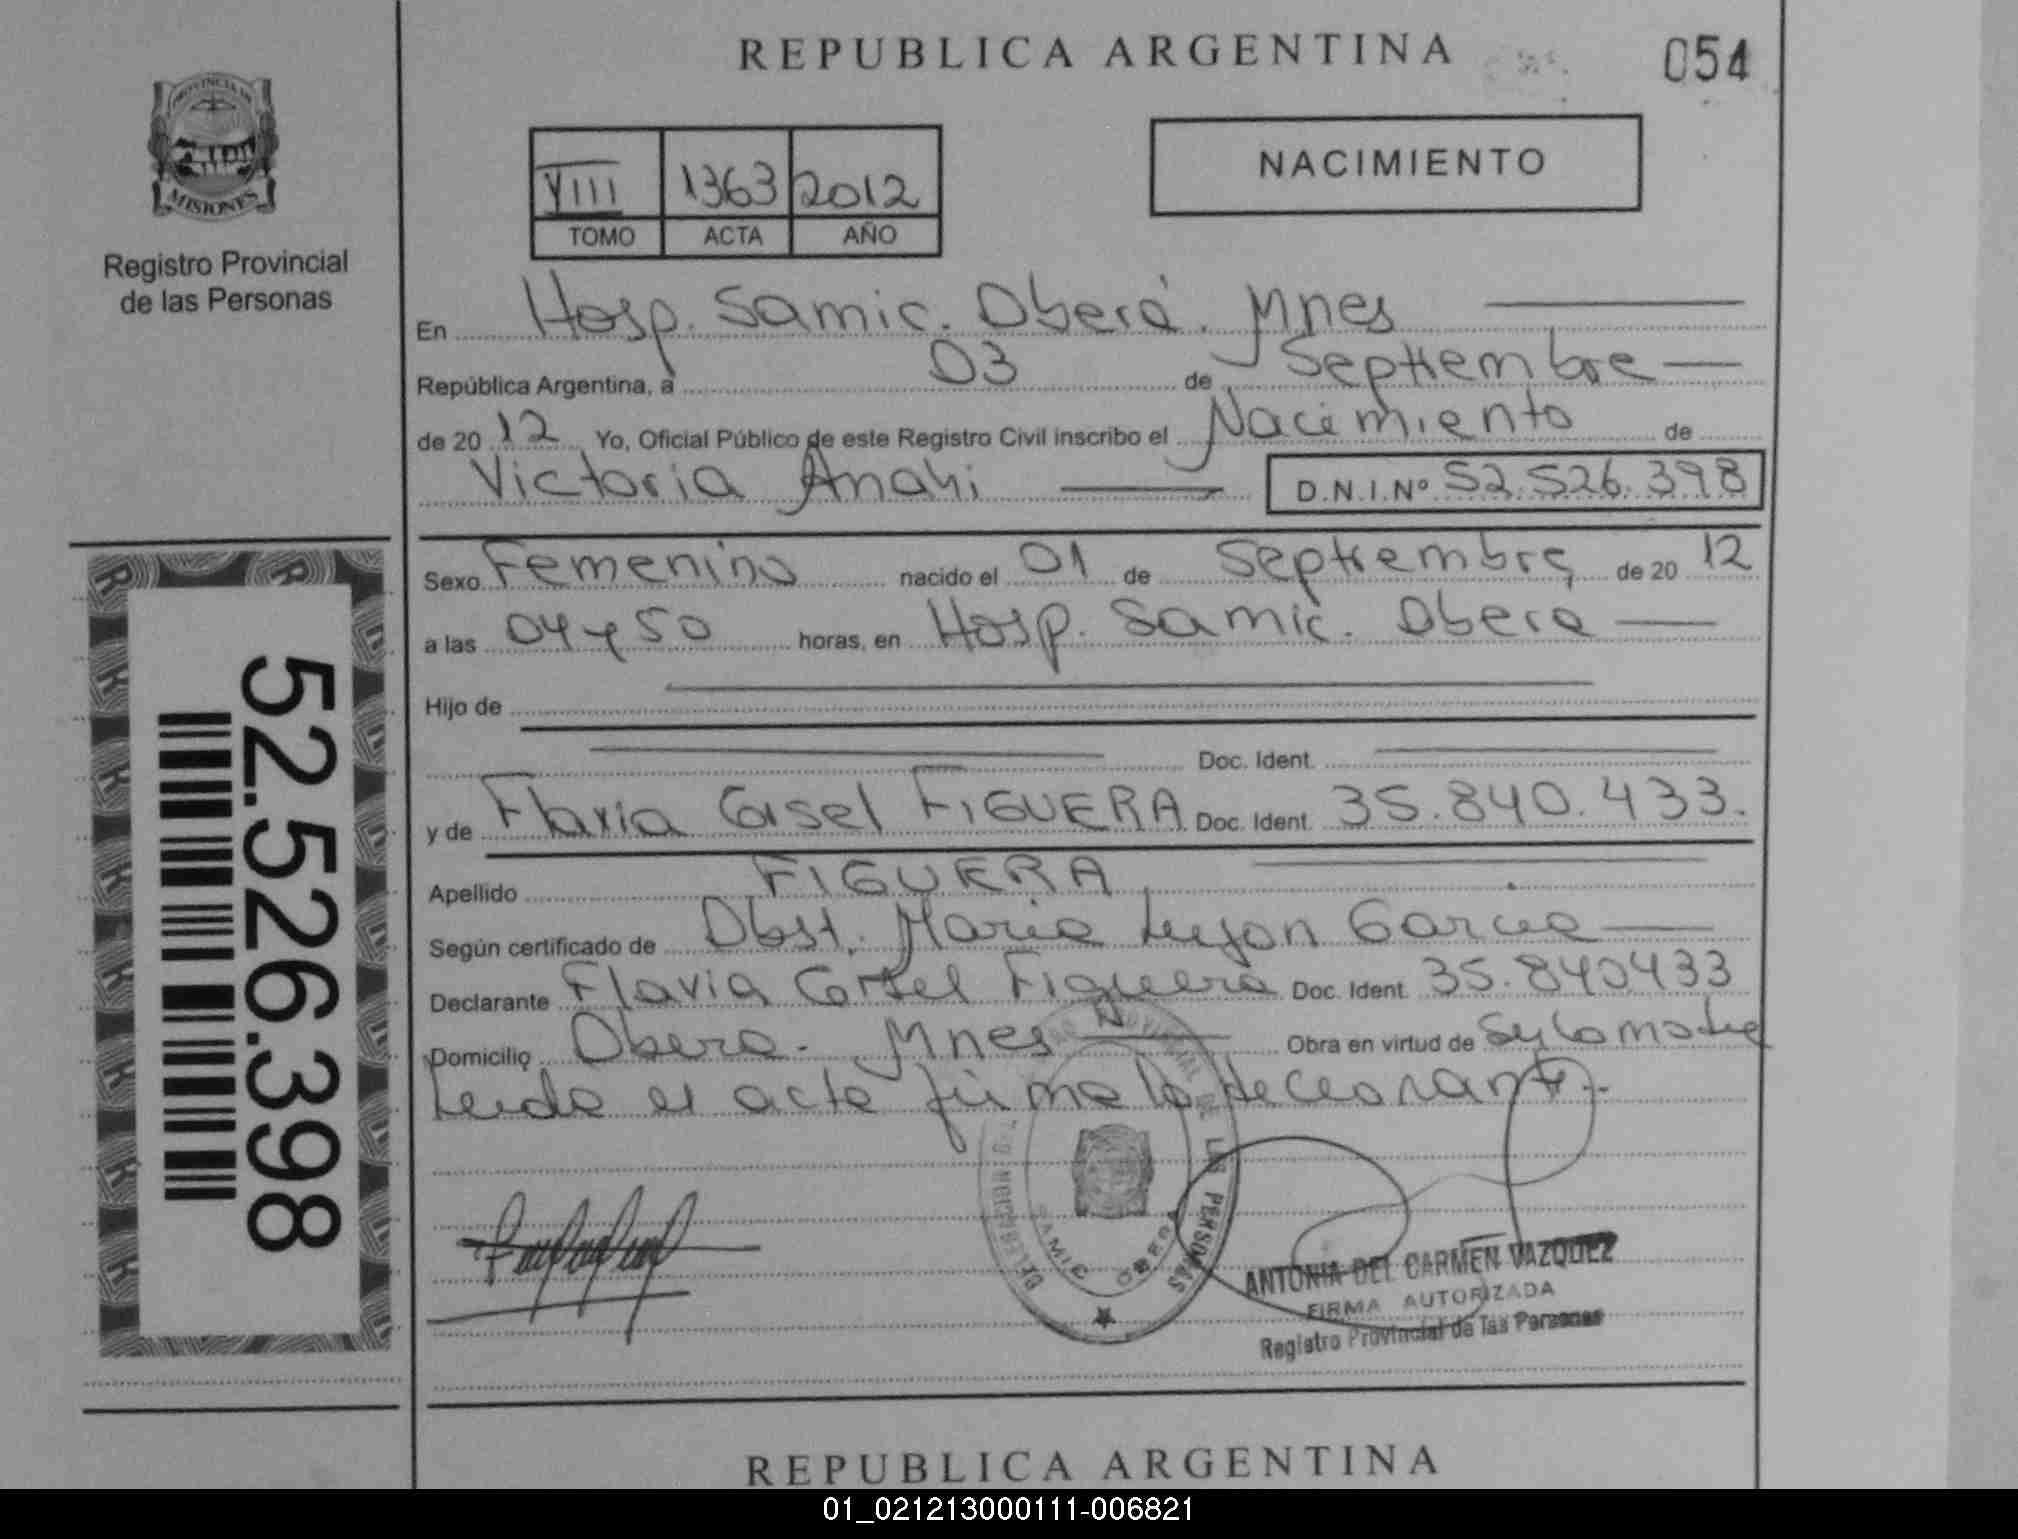 REPUBLICA ARGENTINA
054
PROVINCIA DE
MISIONES
Registro Provincial
de las Personas
VIII 1363 2012
TOMO ACTA AÑO
NACIMIENTO
En Hosp. Samic. Oberá. Mnes
República Argentina, a 03 de Septiembre
de 2012 Yo, Oficial Público de este Registro Civil inscribo el Nacimiento de
Victoria Anahi D.N.I.Nº 52.526.398
Sexo Femenino nacido el 01 de Septiembre de 2012
a las 04 y 50 horas, en Hosp. Samic. Obera
Hijo de
Doc. Ident.
y de Flavia Gisel FIGUERA Doc. Ident. 35.840.433.
Apellido FIGUERA
Según certificado de Obst. Maria Lujan Garcia
Declarante Flavia Gisel Figuera Doc. Ident. 35.840433
Domicilio Obera. Mnes Obra en virtud de
Leida el acta firma la declarante.
52.526.398
REGISTRO PROVINCIAL DE LAS PERSONAS
DELEGACION
SAMIC OBERA
ANTONIA DEL CARMEN VAZQUEZ
FIRMA AUTORIZADA
Registro Provincial de las Personas
REPUBLICA ARGENTINA
01_021213000111-006821